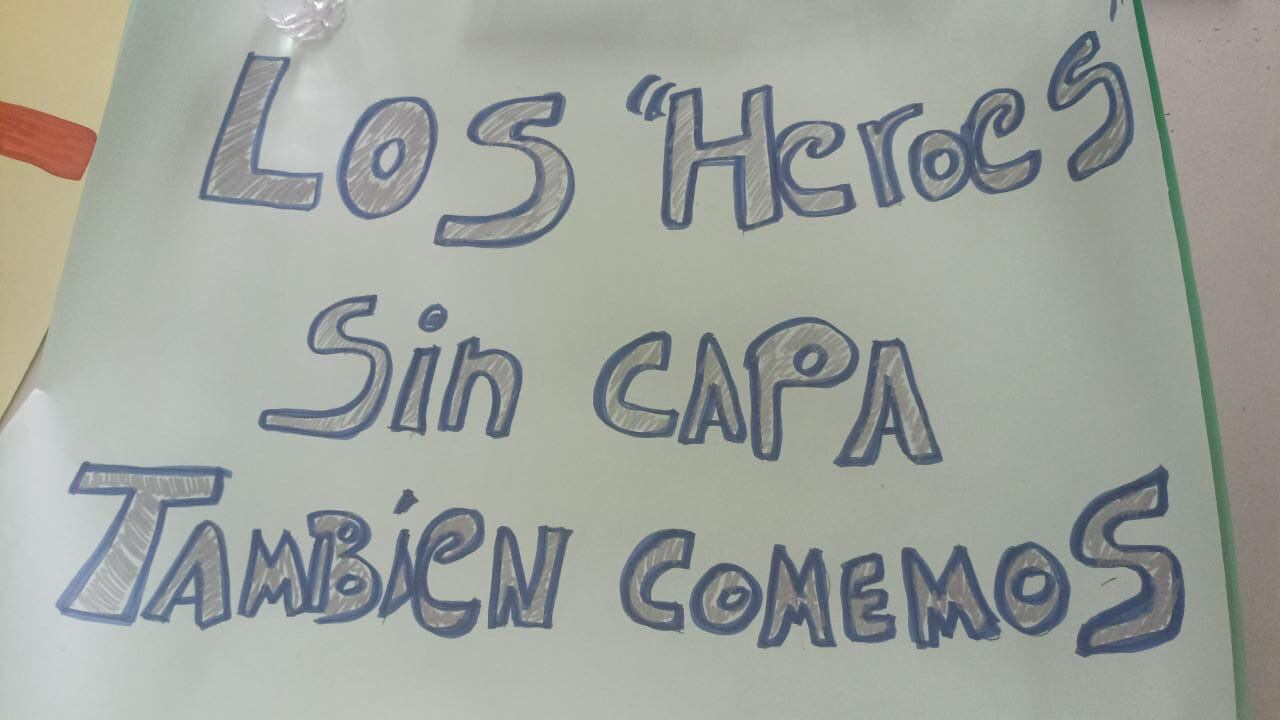 LOS "HeroeS"
Sin CAPA
TAMBíeN COMEMOS